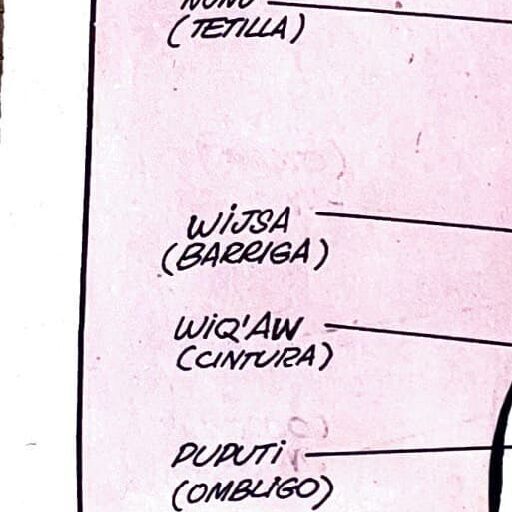 ÑUÑU
(TETILLA)
WiJSA
(BARRIGA)
WiQ'AW
(CINTURA)
PUPUTi
(OMBLIGO)